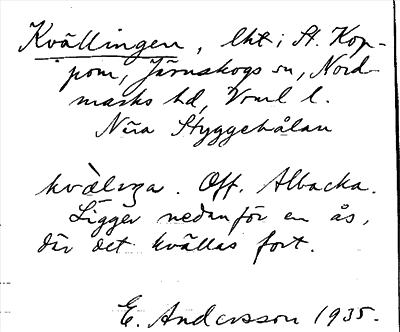 Kvällingen, lht i St. Kop-
pom, Järnskogs sn, Nord-
marks hd, Vrml l.
Nära Styggehålan
kvæ̀lıŋa. Off. Albacka.
Ligger nedanför en ås,
där det kvällas fort.
E. Andersson 1935.